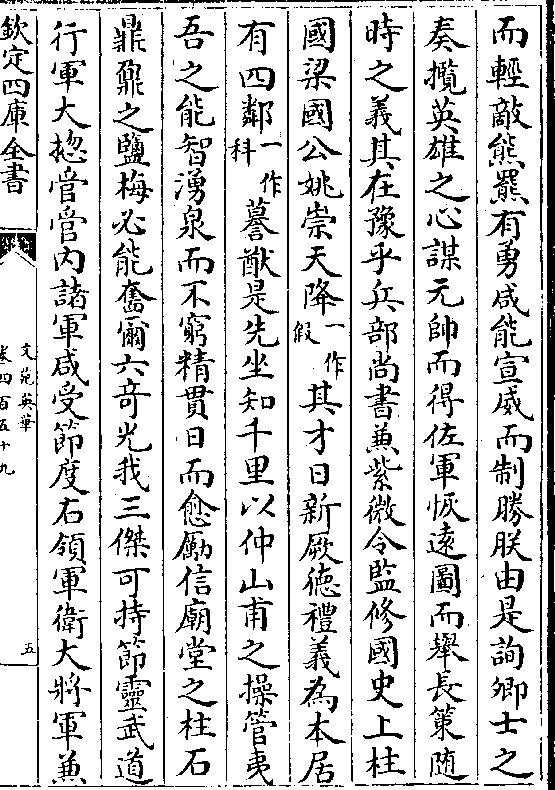 而輕敵熊羆有勇咸能宣威而制勝朕由是詢卿士之
奏攬英雄之心謀元帥而得佐軍恢遠圖而舉長策隨
時之義其在豫乎兵部尚書兼紫微令監修國史上柱
國梁國公姚崇天降一作假其才日新厥德禮義為本居
有四鄰一作科謩猷是先坐知千里以仲山甫之操管夷
吾之能智湧泉而不窮精貫日而愈勵信廟堂之柱石
鼎鼐之鹽梅必能奮爾六奇光我三傑可持節靈武道
行軍大揔管管內諸軍咸受節度右領軍衛大將軍兼
欽定四庫全書
文苑英華
卷四百五十九
五